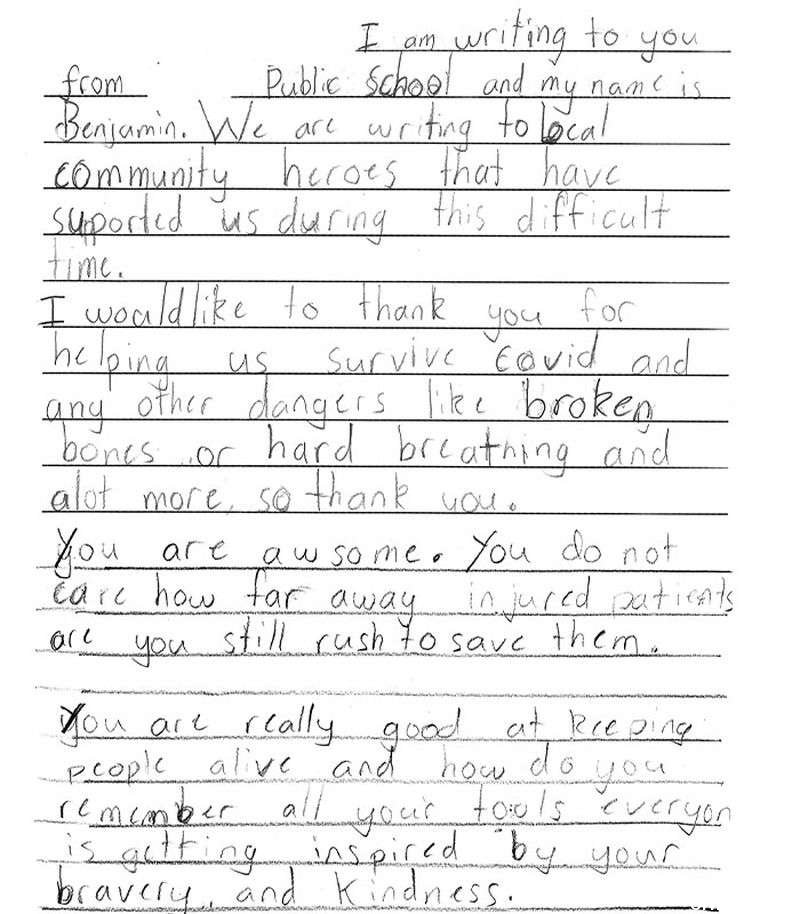 I am writing to you
from Public School and my name is
Benjamin. We are writing to local
community heroes that have
supported us during this difficult
time.
I would like to thank you for
helping us survive covid and
any other dangers like broken
bones or hard breathing and
alot more, so thank you.
You are awsome. You do not
care how far away injured patients
are you still rush to save them.
You are really good at keeping
people alive and how do you
remember all your tools everyon
is getting inspired by your
bravery, and kindness.